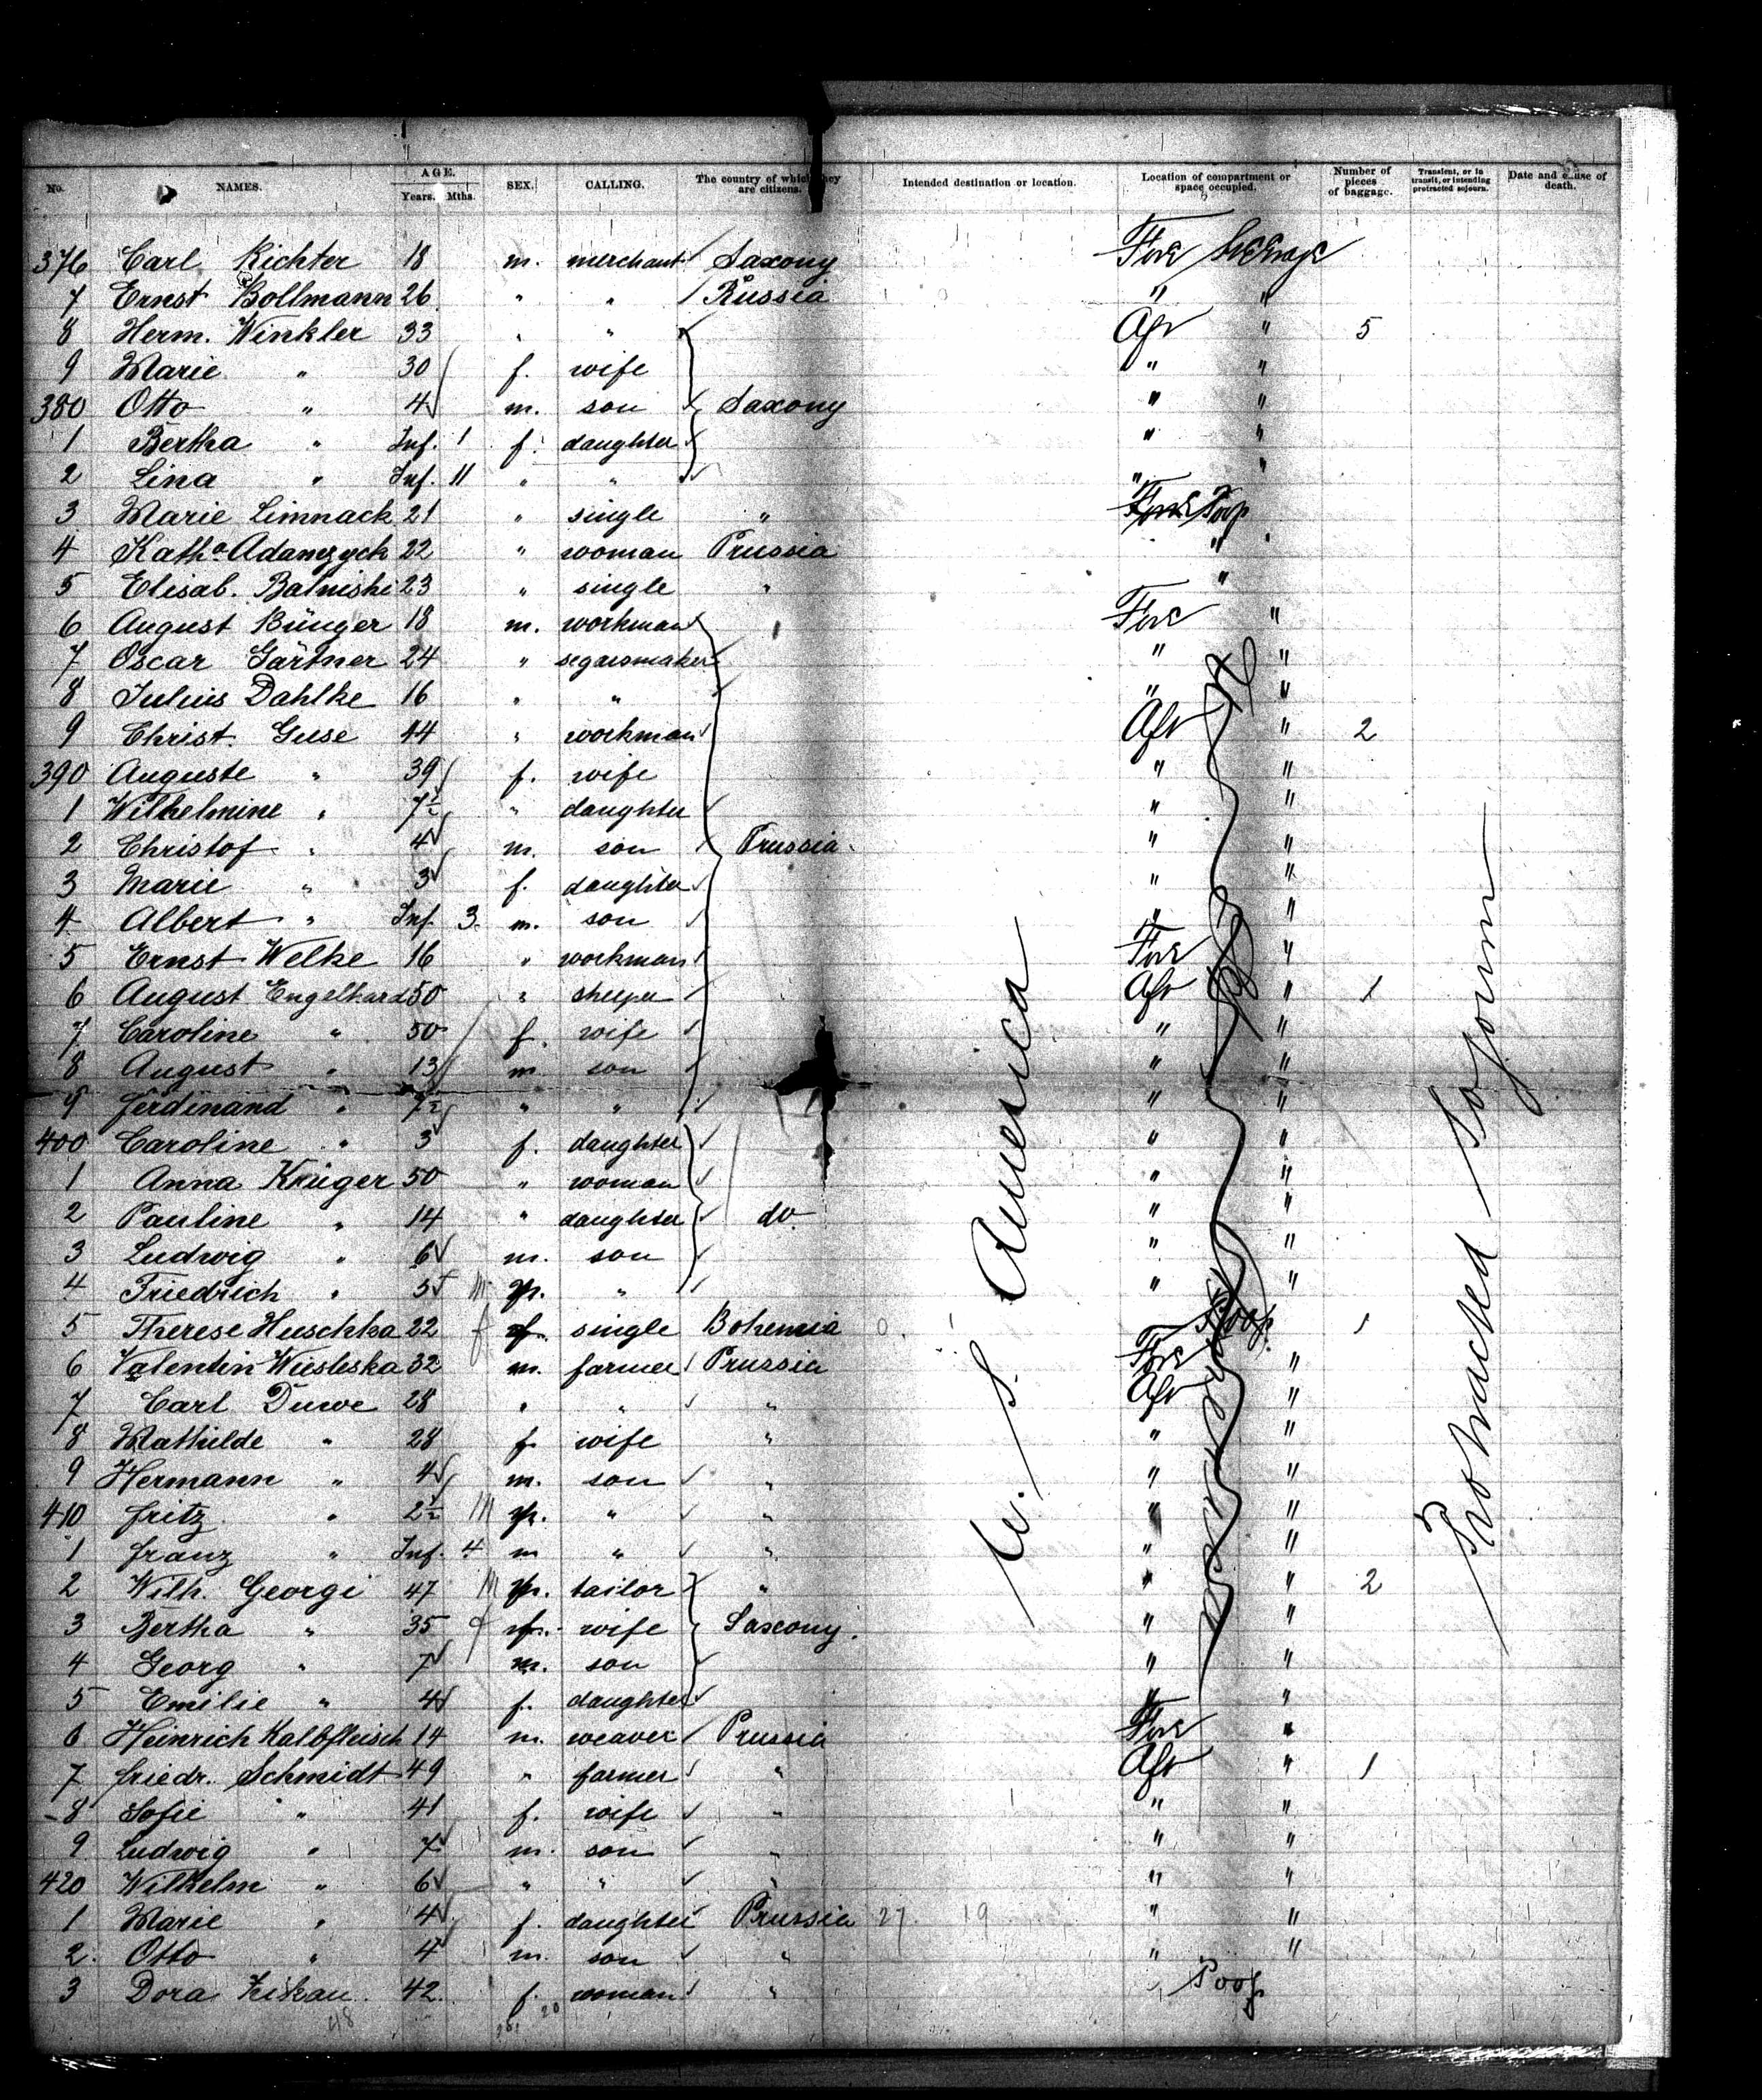 No. NAMES. AGE. Years. Mths. SEX. CALLING. The country of which they are citizens. Intended destination or location. Location of compartment or space occupied. Number of pieces of baggage. Transient, or in transit, or intending protracted sojourn. Date and cause of death.
376 Carl Richter 18 m. merchant Saxony Fore Steerage
7 Ernst Bollmann 26 " " Russia " "
8 Herm. Winkler 33 " " Aft " 5
9 Marie " 30 f. wife " "
380 Otto " 4 m. son Saxony " "
1 Bertha " Inf. 1 f. daughter " "
2 Lina " Inf. 11 " " " "
3 Marie Limnack 21 " single " Fore Poop
4 Katha Adamzyck 22 " woman Prussia " "
5 Elisab. Balniski 23 " single " "
6 August Bünger 18 m. workman Fore "
7 Oscar Gärtner 24 " segarsmaker " "
8 Julius Dahlke 16 " " " "
9 Christ. Guse 44 " workman Aft " 2
390 Auguste " 39 f. wife " "
1 Wilhelmine " 7½ " daughter " "
2 Christof " 4 m. son Prussia " "
3 Marie " 3 f. daughter " "
4 Albert " Inf. 3 m. son " "
5 Ernst Welke 16 " workman Fore "
6 August Engelhard 50 " Aft " 1
7 Caroline " 50 f. wife " "
8 August " 13 m. son " "
9 Ferdinand " 7½ " " " "
400 Caroline " 3 f. daughter " "
1 Anna Krüger 50 " woman " "
2 Pauline " 14 " daughter do. " "
3 Ludwig " 6 m. son " "
4 Friedrich " 5 m " " "
5 Therese Huschka 22 f single Bohemia 0. Poop 1
6 Valentin Wiesleska 32 m. farmer Prussia Fore "
7 Carl Duwe 28 " " " Aft "
8 Mathilde " 28 f. wife " " "
9 Hermann " 4 m. son " " "
410 Fritz " 2½ m " " " "
1 Franz " Inf. 4 m " " " "
2 Wilh. Georgi 47 m tailor " " " 2
3 Bertha " 35 f wife Saxony. " "
4 Georg " 7 m. son " "
5 Emilie " 4 f. daughter " "
6 Heinrich Kalbfleisch 14 m. weaver Prussia Fore "
7 Friedr. Schmidt 49 " farmer " Aft " 1
8 Sofie " 41 f. wife " " "
9 Ludwig " 7 m. son " " "
420 Wilhelm " 6 " " " " "
1 Marie " 4 f. daughter Prussia 27. 19 " "
2. Otto " 4 m. son " " "
3 Dora 42. f. woman " Poop
48 20
U. S. America
Protracted Sojourn